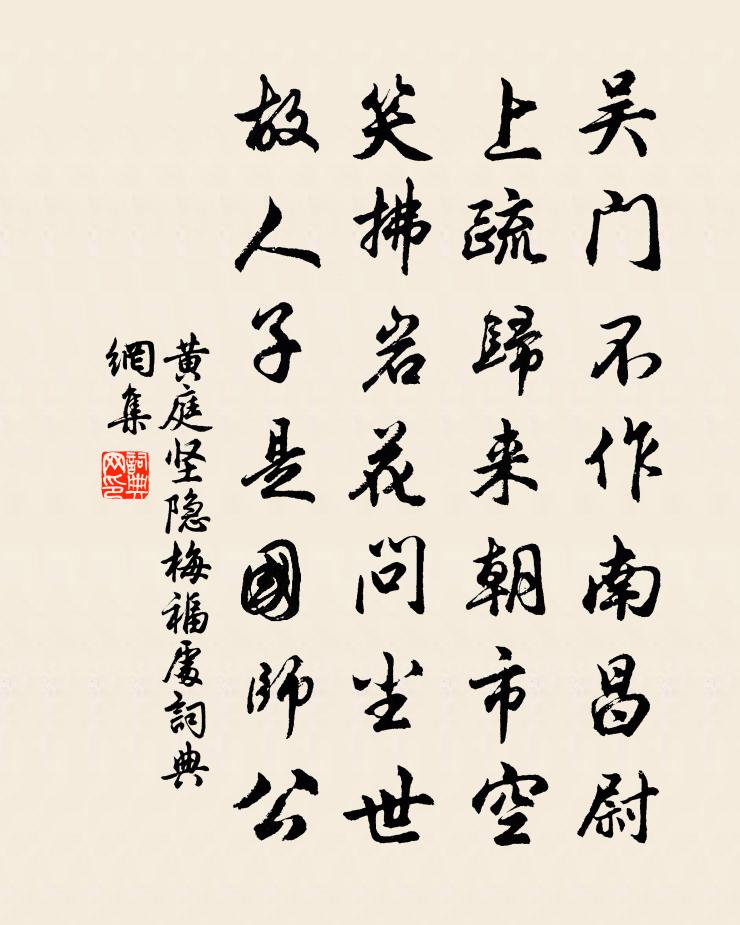 吴门不作南昌尉
上疏歸来朝市空
笑拂岩花问尘世
故人子是國師公
黄庭坚隐梅福处詞典
網集
詞典網印